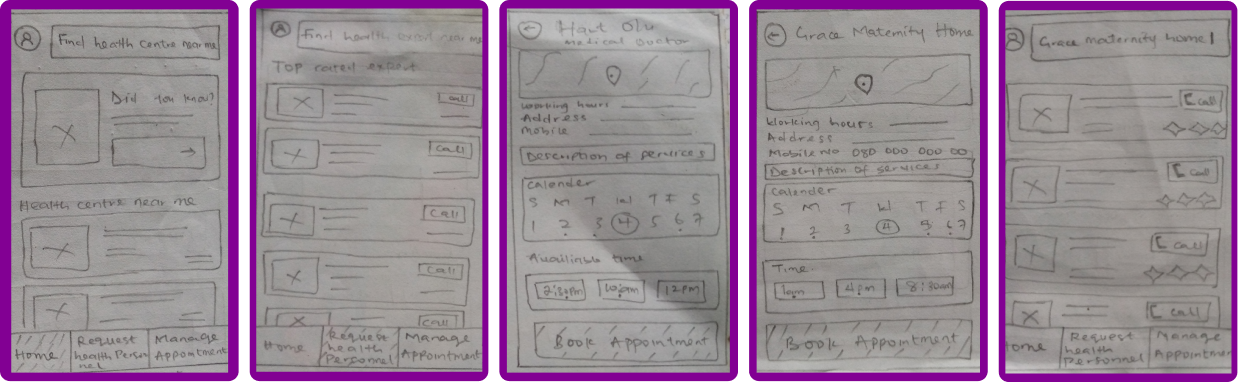 Find health Centre near me
Did you know?
Health centre near me
Home
Request
health Person
nel
Manage
Appointment
Find health expert near me
Top rated expert
Call
Call
Call
Call
Call
Home
Request
health
Personnel
Manage
Appointment
Medical Doctor
Working hours
Address
Mobile
Description of services
Calender
S M T W T F S
1 2 3 4 5 6 7
Available time
10:00am
12pm
Book Appointment
Grace Maternity Home
Working hours
Address
Mobile No 080 000 000 00
Description of services
Calender
S M T W T F S
1 2 3 4 5 6 7
Time
10am
4pm
8:30am
Book Appointment
Grace maternity home
Call
Call
Call
Call
Home
Request
health
Personnel
Manage
Appointment